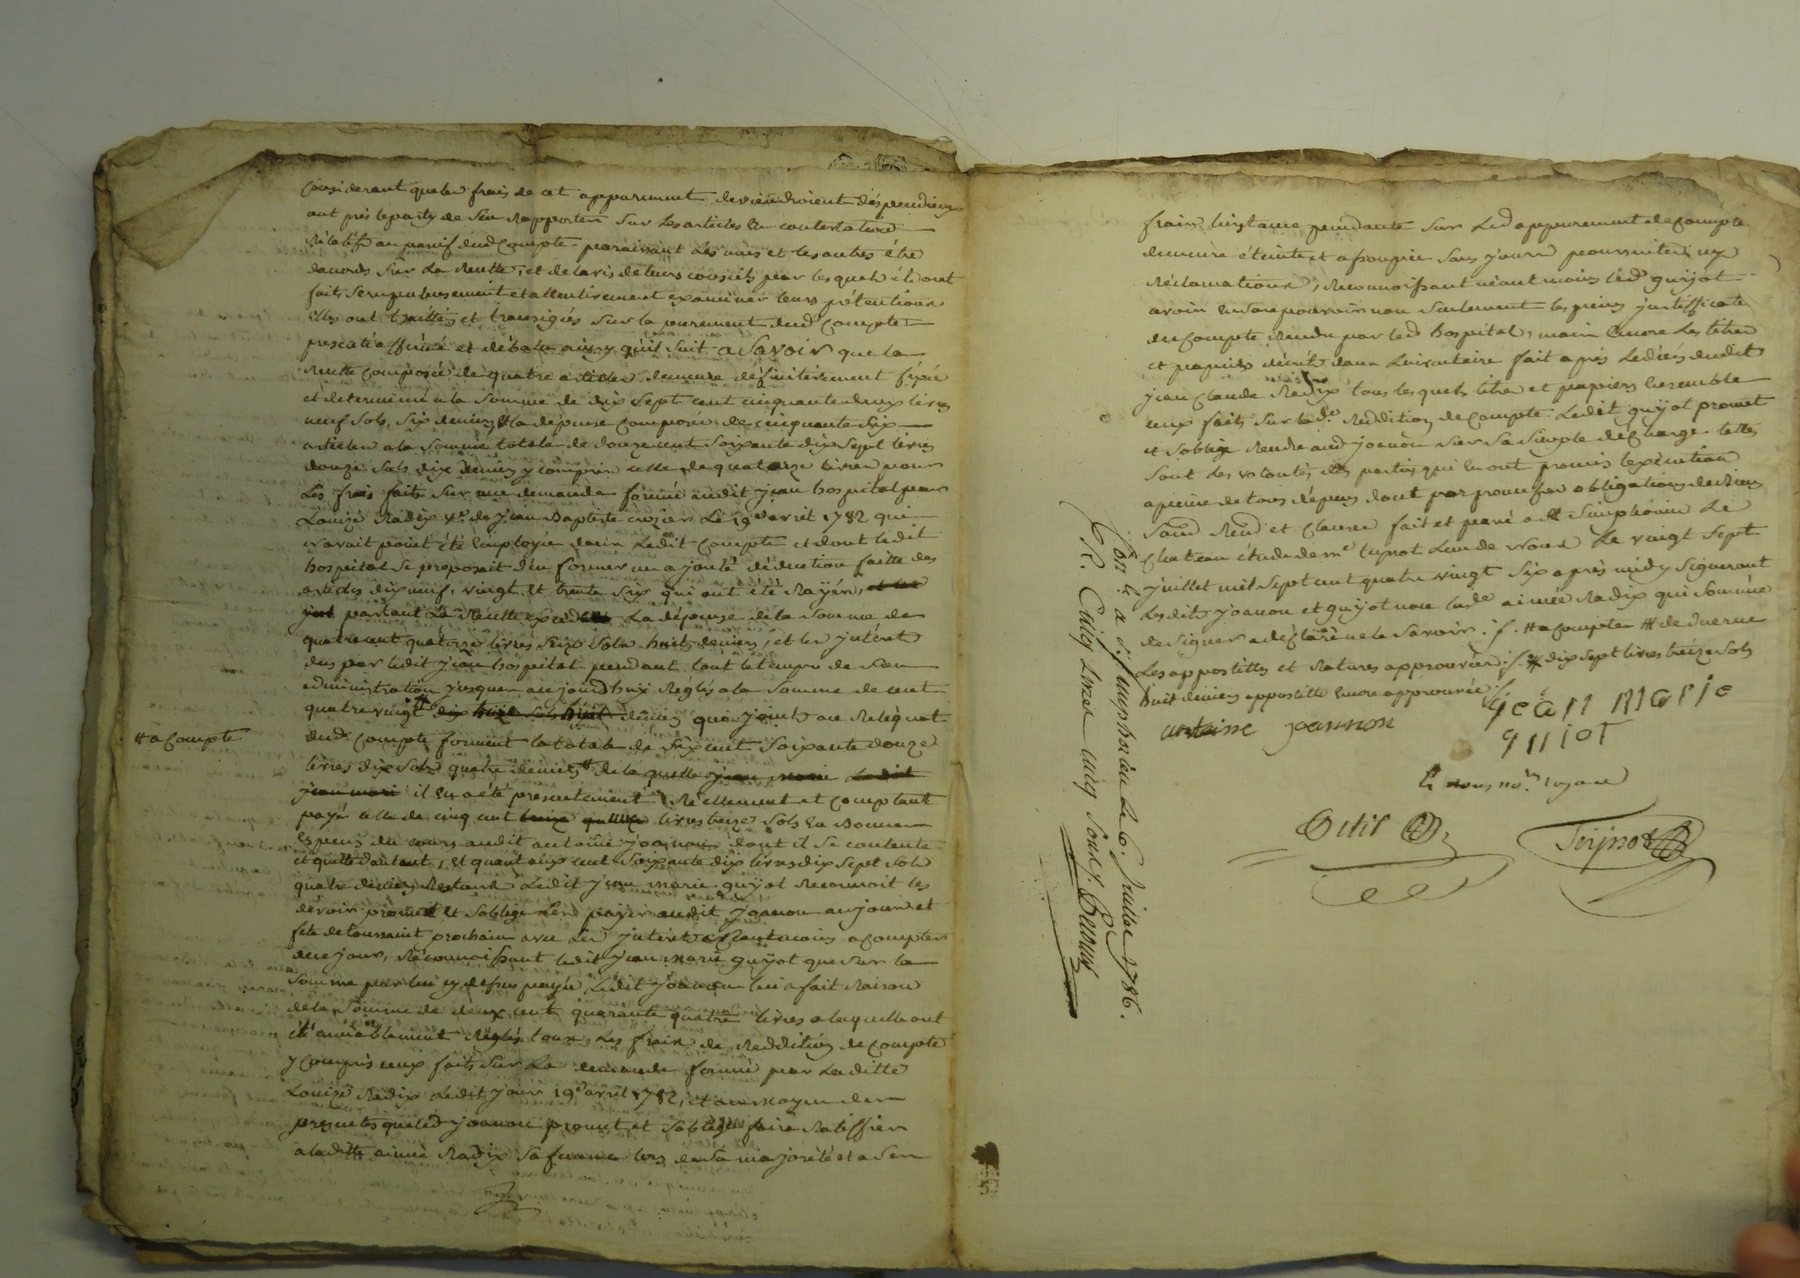 considerant que les frais de cet appurement deviendroient dispendieux
ont pris le party de s'en rapporter sur les articles en contestation
relatifs au passif dud compte paraissant les unes et les autres être
d'accords sur la recette, et de l'avis de leurs conseils par lesquels ils ont
fait scrupuleusement et attentivement examiner leurs prétentions
elles ont traittés et transigés sur le purement dud compte
presenté affirmé et débatu ainsy qu'il suit a savoir que la
recette composée de quatre articles demeure définitivement fixée
et determiné a la somme de dix sept cent cinquante deux livres
neuf sols, six deniers et la dépense composée de cinquante dix
articles a la somme totale de douze cent soixante dix sept livres
douze sols dix deniers y compris celle de quatorze livres pour
les frais faits sur une demande formée audit jean hospital par
Louize Radix ve de jean Baptiste crozier le 19e avril 1782 qui
n'avait point été employée dans ledit compte et dont ledit
hospital se proposait d'en former un ajouté déduction faitte des
articles dix neuf, vingt et trente six qui ont été rayés,
partant la recette excede la dépense de la somme de
quatre cent quatorze livres seize sols huit deniers, et les jnterêt
dus par ledit jean hospital pendant tout le temps de son
administration jusques aujourd'huy réglés a la somme de cent
quatre vingt dix huit sols huit deniers qui joints au reliquat
# a compte
dud. compte forment la totale de six cent soixante douze
livres dix sols quatre deniers # de laquelle jean marie ledit
jean mari il en a été presentement réellement et comptant
payé celle de cinq cent livres treize sols en bonnes
espèces du cours audit antoine joanon dont il se contente
et quitte d'autant, et quant aux cent soixante dix livres dix sept sols
quatre deniers restant ledit jean marie guyot reconnoit les
devoir promet et s'oblige les payer audit joanon au jour et
fête de toussaint prochain avec les jnterêt a compter
de ce jour, reconnoissant ledit jean marie guyot que sur la
somme par lui cy dessus payée ledit joanon lui a fait raison
de la somme de deux cent quarante quatre livres a laquelle ont
été amiablement réglés tous les frais de reddition de compte
y compris ceux faits sur la demande formée par laditte
Louize Radix ledit jour 19e avril 1782, et au moyen des
presentes que led joanon promet et s'oblige faire ratiffier
a laditte aimée Radix sa femme lors de sa majorité et a ses
frais l'instance pendante sur led appurement de compte
demeure éteinte et assoupie sans j'cuire poursuites ny
réclamations, reconnoissant néant moins led guyot
avoir en son pouvoir non seulement les pièces justifficatives
du compte rendu par led hospital, mais encore les titres
et papiers décrit dans l'inventaire fait après le décès dudit
jean Claude Radix tous lesquels titres et papiers ensemble
ceux faits sur lade reddition de compte ledit guyot promet
et s'oblige rendre aud joanon sur sa simple décharge telles
sont les volontés des parties qui en ont promis l'exécution
a peine de tous dépens dont par promesses obligations de biens
soum renon et clauses fait et passé a st simphorien le
chateau étude de me teynot l'un de nous le vingt sept
juillet mil sept cent quatre vingt six après midy signeront
lesdit joanon et guyot non lade aimée Radix qui sommée
de signer a déclaré ne le savoir ./. # a compter # de
Les appostilles et ratures approuvées ./. # dix sept livres treize sols
huit deniers appostille encore approuvée ./.
jean marie
antoine joannon
guiot
Et nous nores royaux
Petit
Teynot
Con. lé a st simphorien le 6. juillet 1786.
R. Cinq livres cinq sous.